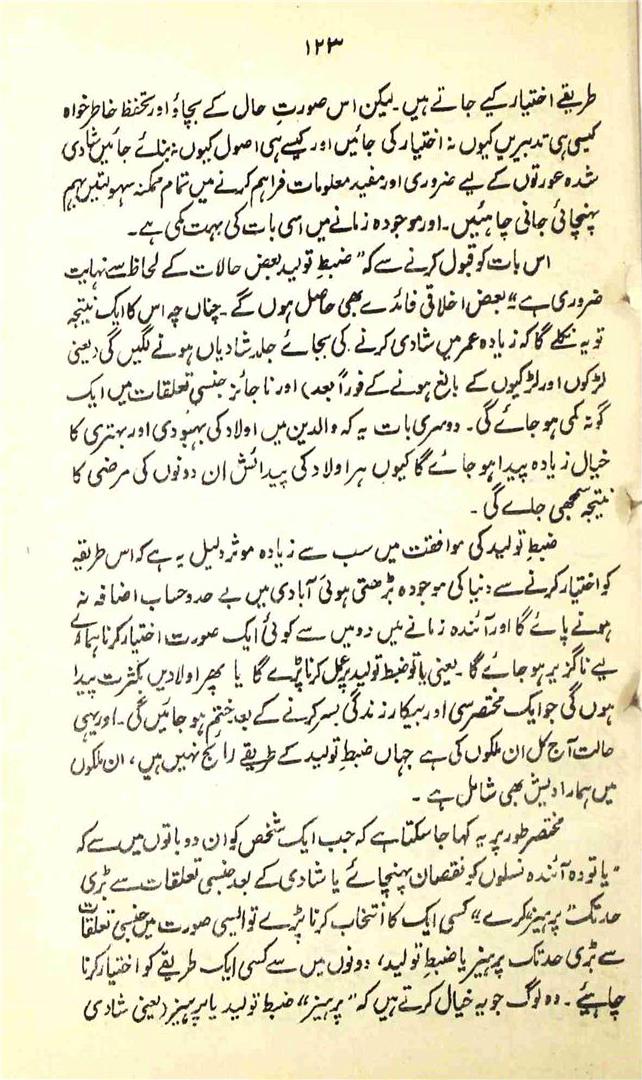 ۱۲۳
طریقے اختیار کیے جاتے ہیں۔ لیکن اس صورتِ حال کے بچاؤ اور تحفظ خاطر خواہ
کیسی ہی تدبیریں کیوں نہ اختیار کی جائیں اور کیسے ہی اصول کیوں نہ بنائے جائیں شادی
شدہ عورتوں کے لیے ضروری اور مفید معلومات فراہم کرنے میں تمام ممکنہ سہولتیں بہم
پہنچائی جانی چاہئیں۔ اور موجودہ زمانے میں اسی بات کی بہت کمی ہے۔
اس بات کو قبول کرنے سے کہ "ضبطِ تولید بعض حالات کے لحاظ سے نہایت
ضروری ہے" بعض اخلاقی فائدے بھی حاصل ہوں گے۔ چناں چہ اس کا ایک نتیجہ
تو یہ نکلے گا کہ زیادہ عمر میں شادی کرنے کی بجائے جلد شادیاں ہونے لگیں گی (یعنی
لڑکوں اور لڑکیوں کے بالغ ہونے کے فوراً بعد) اور ناجائز جنسی تعلقات میں ایک
گونہ کمی ہو جائے گی۔ دوسری بات یہ کہ والدین میں اولاد کی بہبودی اور بہتری کا
خیال زیادہ پیدا ہو جائے گا کیوں ہر اولاد کی پیدائش ان دونوں کی مرضی کا
نتیجہ سمجھی جلے گی۔
ضبطِ تولید کی موافقت میں سب سے زیادہ موثر دلیل یہ ہے کہ اس طریقہ
کو اختیار کرنے سے دنیا کی موجودہ بڑھتی ہوئی آبادی میں بے حد و حساب اضافہ نہ
ہونے پائے گا اور آئندہ زمانے میں دو میں سے کوئی ایک صورت اختیار کرنا ہمارے
لیے ناگزیر ہو جائے گا۔ یعنی یا تو ضبطِ تولید پر عمل کرنا پڑے گا یا پھر اولادیں بکثرت پیدا
ہوں گی جو ایک مختصر سی اور بیکار زندگی بسر کرنے کے بعد ختم ہو جائیں گی۔ اور یہی
حالت آج کل ان ملکوں کی ہے جہاں ضبطِ تولید کے طریقے رائج نہیں ہیں، ان ملکوں
میں ہمارا دیش بھی شامل ہے۔
مختصر طور پر یہ کہا جا سکتا ہے کہ جب ایک شخص کو ان دو باتوں میں سے کہ
"یا تو وہ آئندہ نسلوں کو نقصان پہنچائے یا شادی کے بعد جنسی تعلقات سے بڑی
حد تک" پرہیز کرے" کسی ایک کا انتخاب کرنا پڑے تو ایسی صورت میں جنسی تعلقات
سے بڑی حد تک پرہیز یا ضبطِ تولید، دونوں میں سے کسی ایک طریقے کو اختیار کرنا
چاہیے۔ وہ لوگ جو یہ خیال کرتے ہیں کہ "پرہیز" ضبطِ تولید یا پرہیز (یعنی شادی